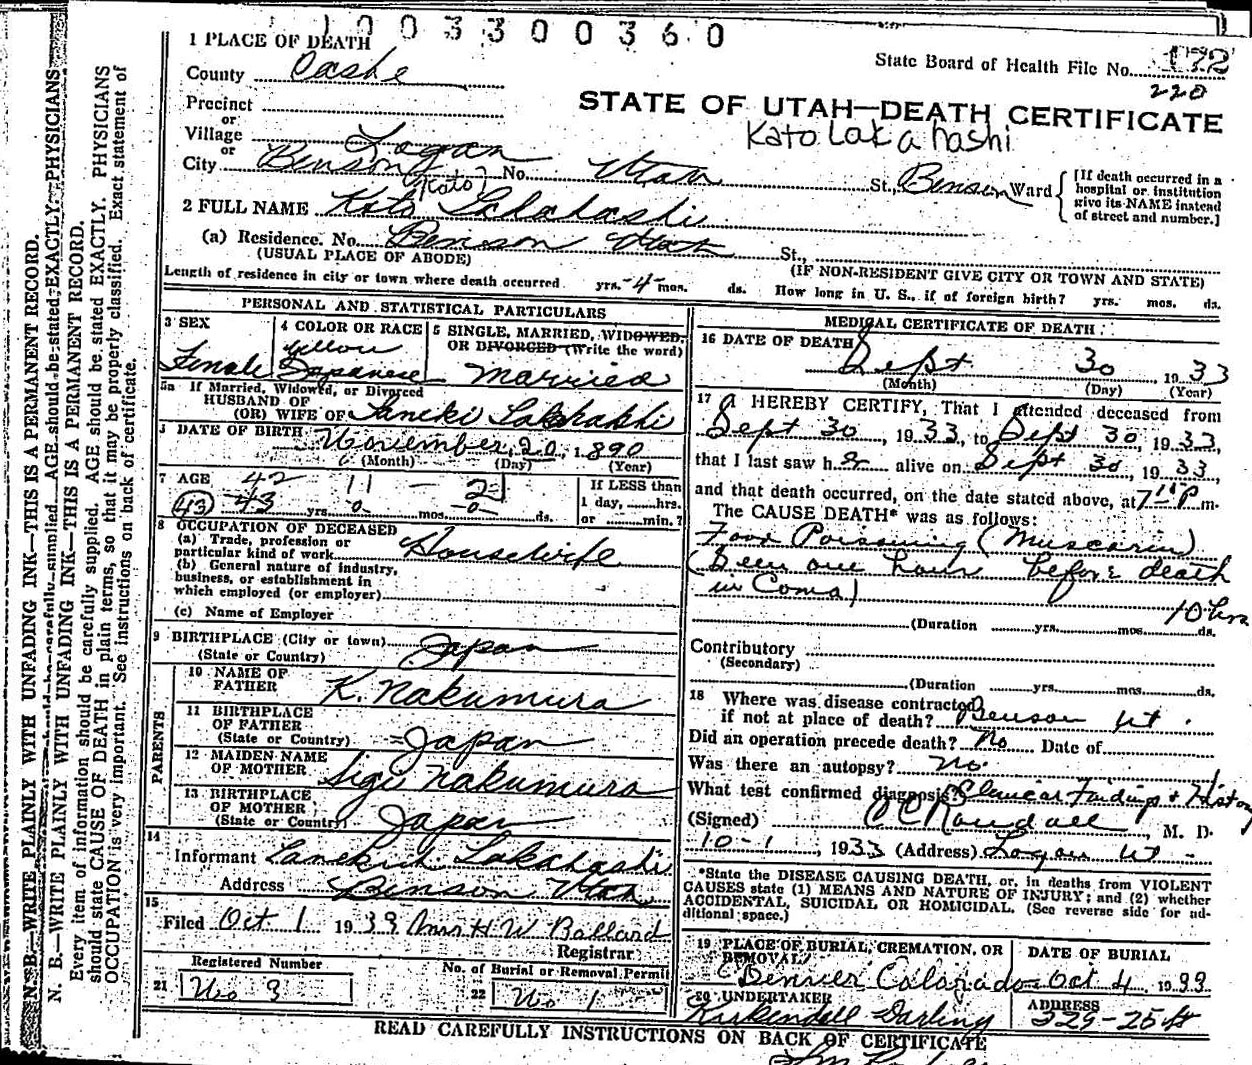 1 0 0 3 3 0 0 3 6 0
1 PLACE OF DEATH
State Board of Health File No. 172
220
County Cashe
STATE OF UTAH—DEATH CERTIFICATE
Precinct
or
Village Logan
or
Kato Lakahashi
City Benson No. Utah St., Benson Ward
[If death occurred in a hospital or institution give its NAME instead of street and number.]
(Kato)
2 FULL NAME Koto Takahashi
(a) Residence. No. Benson Utah St.,
(USUAL PLACE OF ABODE)
(IF NON-RESIDENT GIVE CITY OR TOWN AND STATE)
Length of residence in city or town where death occurred yrs. -4- mos. ds. How long in U. S., if of foreign birth? yrs. mos. ds.
PERSONAL AND STATISTICAL PARTICULARS
3 SEX
Female
4 COLOR OR RACE
yellow
Japanese
5 SINGLE, MARRIED, WIDOWED, OR DIVORCED (Write the word)
Married
5a If Married, Widowed, or Divorced
HUSBAND OF
(OR) WIFE OF Taneki Takahashi
DATE OF BIRTH November, 20, 1890
(Month) (Day) (Year)
7 AGE 42 11 — 21
43 43 yrs. -0- mos. -0- ds.
If LESS than
1 day, ........hrs.
or ........min.?
8 OCCUPATION OF DECEASED
(a) Trade, profession or
particular kind of work Housewife
(b) General nature of industry,
business, or establishment in
which employed (or employer)
(c) Name of Employer
9 BIRTHPLACE (City or town) Japan
(State or Country)
PARENTS
10 NAME OF
FATHER K. Nakumura
11 BIRTHPLACE
OF FATHER
(State or Country) Japan
12 MAIDEN NAME
OF MOTHER Sigi Nakumura
13 BIRTHPLACE
OF MOTHER
(State or Country) Japan
14
Informant Tanekich Takahashi
Address Benson Utah
15
Filed Oct 1 1933 Mrs H W Ballard
Registrar
Registered Number
21 No 3
No. of Burial or Removal Permit
22 No 1
MEDICAL CERTIFICATE OF DEATH
16 DATE OF DEATH
Sept 30 1933
(Month) (Day) (Year)
17 I HEREBY CERTIFY, That I attended deceased from
Sept 30, 1933, to Sept 30, 1933,
that I last saw her alive on Sept 30, 1933,
and that death occurred, on the date stated above, at 7 P m.
The CAUSE DEATH* was as follows:
Food Poisoning (Muscarin)
(Seen one hour before death
in Coma)
10 hrs
(Duration yrs. mos. ds.
Contributory
(Secondary)
(Duration yrs. mos. ds.
18 Where was disease contracted
if not at place of death? Benson Ut.
Did an operation precede death? No Date of
Was there an autopsy? No.
What test confirmed diagnosis? Clinical Findings & History
(Signed) O C Randall, M. D.
10-1, 1933 (Address) Logan Ut -
*State the DISEASE CAUSING DEATH, or, in deaths from VIOLENT
CAUSES state (1) MEANS AND NATURE OF INJURY; and (2) whether
ACCIDENTAL, SUICIDAL OR HOMICIDAL. (See reverse side for additional space.)
19 PLACE OF BURIAL, CREMATION, OR
REMOVAL
Denver Colorado
DATE OF BURIAL
Oct 4 1933
20 UNDERTAKER
Kirkendell Darling
ADDRESS
229-25 St
READ CAREFULLY INSTRUCTIONS ON BACK OF CERTIFICATE
N. B.—WRITE PLAINLY WITH UNFADING INK—THIS IS A PERMANENT RECORD.
Every item of information should be carefully supplied. AGE should be stated EXACTLY. PHYSICIANS
should state CAUSE OF DEATH in plain terms, so that it may be properly classified. Exact statement of
OCCUPATION is very important. See instructions on back of certificate.